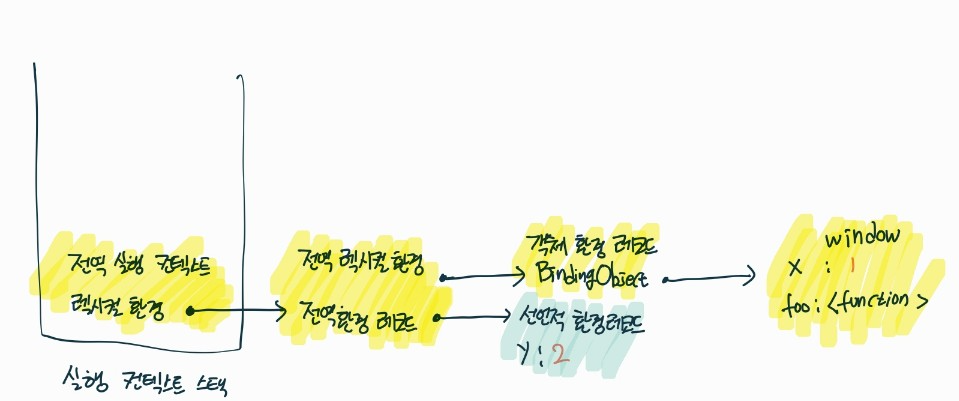 전역 실행 컨텍스트
렉시컬 환경
실행 컨텍스트 스택
전역 렉시컬 환경
전역환경 레코드
객체 환경 레코드
BindingObject
선언적 환경레코드
y : 2
window
x : 1
foo : <function>